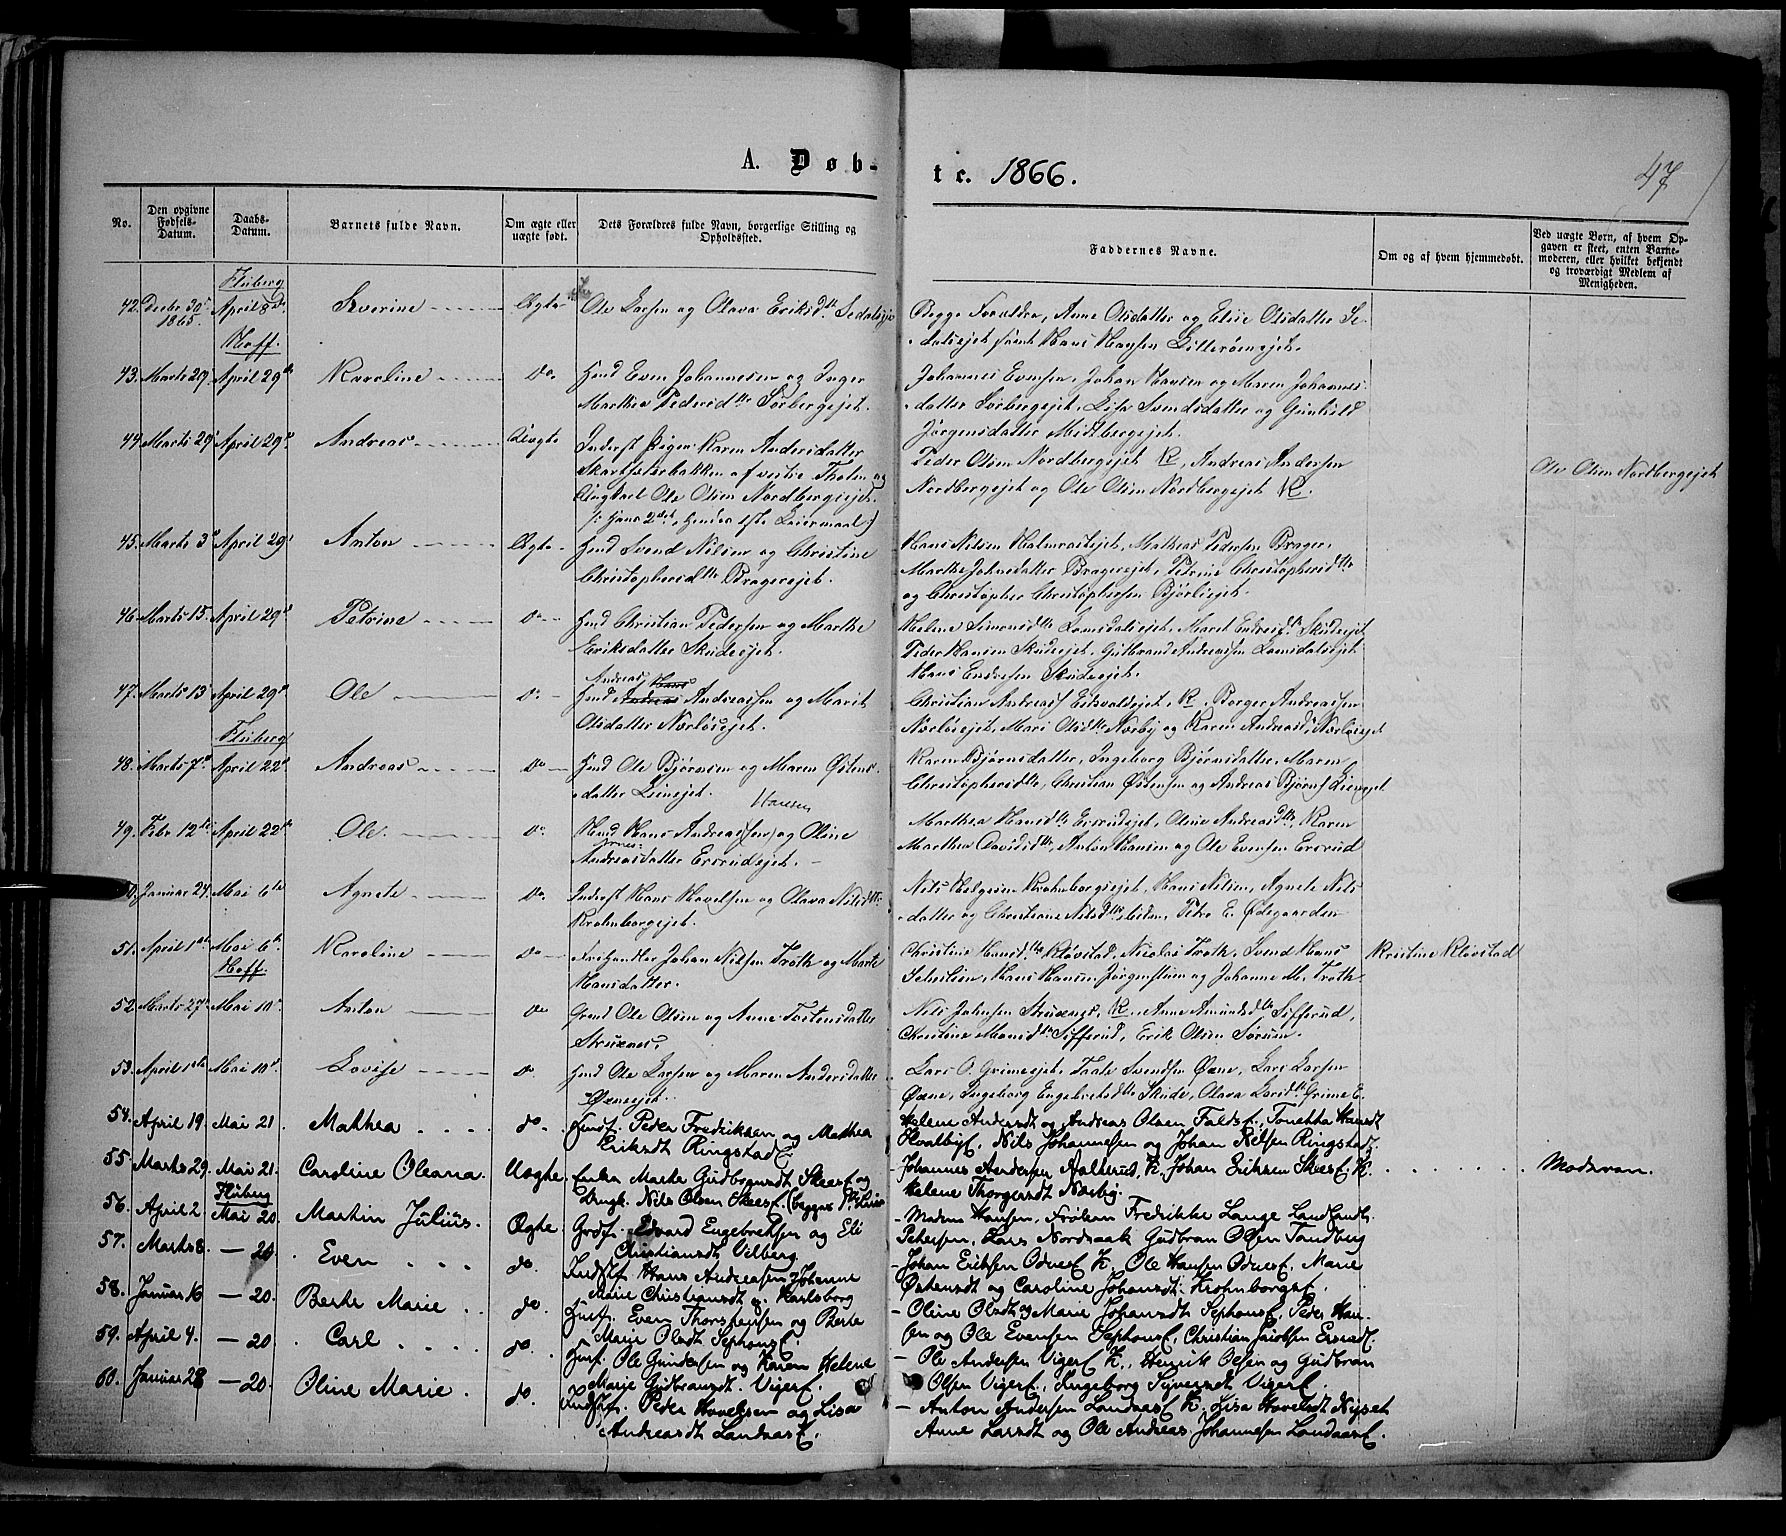 A. Døb-
te. 1866.
47
No.
Den opgivne Fødsels-Datum.
Daabs-Datum.
Barnets fulde Navn.
Om ægte eller uægte født.
Dets Forældres fulde Navn, borgerlige Stilling og Opholdssted.
Faddernes Navne.
Om og af hvem hjemmedøbt.
Ved uægte Børn, af hvem Opgaven er skeet, enten Barnemoderen, eller hvilket bekjendt og troværdigt Medlem af Menigheden.
Fluberg
42. Decbr 30 1865. April 8de Severine Ægte Ole Larsen og Olava Eriksdtr Sedalsjet
Begge Forældre, Anne Olsdatter og Elise Olsdatter Se-
dalsejet samt Hans Hansen Lillerønsejet.
Hoff.
43. Marts 29 April 29de Karoline do. Hmd Even Johannesen og Inger
Marthea Pedersdtr Sørbergsejet.
Johannes Evensen, Johan Hansen og Maren Johannes-
datter Sørbergsejet, Lisa Svendsdatter og Gunhild
Jørgensdatter Midtbergsejet.
44. Marts 29 April 29de Andreas Uægte Inderst Pigen Karen Andersdatter
af vestre Thoten og
Ungkarl Ole Olsen Nordbergsejet.
(: hans 2det, hendes 1ste Leiermaal :)
Peder Olsen Nordbergsejet K, Andreas Andersen
Nordbergsejet og Ole Olsen Nordbergsejet K.
Ole Olsen Nordbergsejet
45. Marts 3de April 29de Anton Ægte Hmd Svend Nilsen og Christine
Christophersdtr Bragersejet.
Hans Nilsen Mathias Pedersen Brager,
Marthe Johnsdatter Bragersejet, Petrine Christophersdtr
og Christopher Christophersen Bjørlisejet.
46. Marts 15. April 29de Petrine do Hmd Christian Pedersen og Marthe
Eriksdatter Skudesejet.
Helene Simensdtr Lomsdalsejet, Marit Endresdtr Skudesejet
Peder Hansen Skudesejet, Gulbrand Andreassen Lomsdalsejet
Hans Endresen Skudesejet.
47. Marts 13 April 29de Ole do Hmd Andreas Andreassen og Marit
Olsdatter Nørløssejet.
Christian Andreass Eidsvoldsejet, K, Borger Andreassen
Nørløsejet, Mari Olsdtr Nørby og Karen Andreasd Nørløsejet
Fluberg
48. Marts 7de April 22de Andreas do Hmd Ole Bjørnsen og Maren Østens-
datter Liensejet.
Karen Bjørnsdatter, Ingeborg Bjørnsdatter, Maren
Christophersdtr, Christian Østensen og Andreas Bjørns Liensejet
49. Febr 12te April 22de Ole do Hmd Hans Andreas Hansen og Oline
Andreasdatter Ersrudsejet.
Marthea Hansdtr Ersrudsejet, Oline Andreasdtr, Karen
Marthea Davidsdtr, Anton Hansen og Ole Evensen Ersrud
50. Januar 24. Mai 6te Agnete do. Inderst Hans Havelsen og Olava Nilsdtr
Krohnborgsejet.
Nils Helgesen Krohnborgsejet, Hans Nilsen, Agnete Nils-
datter og Christiane Nilsdtr Petro E. Ødegaarden
51. April 1ste Mai 6te Karoline do Johan Nilsen Troth og Marte
Hansdatter.
Christine Hansdtr Kløvstad, Nicolai Troth, Svend Hans
Hans Hansen og Johanne M. Troth
Kristine Kløvstad
Hoff.
52. Marts 27de Mai 10de Anton do Grmd Ole Olsen og Anne Tostensdatter
Struxnes.
Nils Johnsen Struxnes, K, Anne Amundsdtr Sifferud,
Christine Hansdtr Sifferud, Erik Olsen Sørum.
53. April 1ste Mai 10de Lovise do. Hmd Ole Larsen og Maren Andersdatter
Øxnesejet.
Lars O. Grimesejet, Taale Svendsen Øxne, Lars Larsen
Øxne, Ingeborg Engebretsdtr Skinde, Olava Larsdtr Grime E.
54. April 19. Mai 21. Mathea do. Husf. Peder Fredriksen og Mathea
Eriksdt Ringstadf.
Helene Andersdt og Andreas Olsen Faldsf. Tonetha Hansdt
Hvalbyf, Nils Johannesen og Johan Nilsen Ringstadf.
55. Marts 29. Mai 21. Caroline Oleana. Uægte. Enke Marte Gudbransdt Skeesf og
Ungk. Nils Olsen Skeesf. (begges 1ste Leier
Johannes Andersen Aalterud, K. Johan Eriksen Skeesf. K.
Helene Thorgersdt Nørby.
Moderen.
Fluberg
56. April 2. Mai 20. Martin Julius. Ægte. Grdf. Edvard Engebretsen og Eli
Christiansdt Velberg
Madme Hansen, Frøken Fredrikke Lange Landhandl.
Petersen, Lars Nordraak Gudbran Olsen Tandberg
57. Marts 8. — 20. Even do. Indstf. Hans Andreassen og Johanne
Marie Christiansdt g. Karlsborg
Johan Eriksen Odnesf K. Ole Hansen Odnesf. Marie
Østensdt og Caroline Johansdt: Krohnborgsf.
58. Januar 16 — 20. Berte Marie do. Husf. Even Thorstensen og Berte
Marie Olsdt Sephonsf.
Oline Olsdt og Marie Johansdt Sephonsf. Peder Han-
sen og Ole Evensen Sephonsf, Christian Jacobsen Ersrudf.
59. April 4. — 20. Carl do. Husf. Ole Gundersen og Karen Helene
Marie Gudbransdt. Vigerf.
Ole Andersen Vigerf K., Henrik Olsen og Gudbran
Olsen Vigerf. Ingeborg Syversdt Vigerf.
60. Januar 28 — 20. Oline Marie. do. Indstf. Peder Havelsen og Lisa
Andreasdt Landaasf.
Anton Andersen Landaasf K. Lisa Havelsdt Nyset
Anne Larsdt og Ole Andreas Johannesen Landaasf.